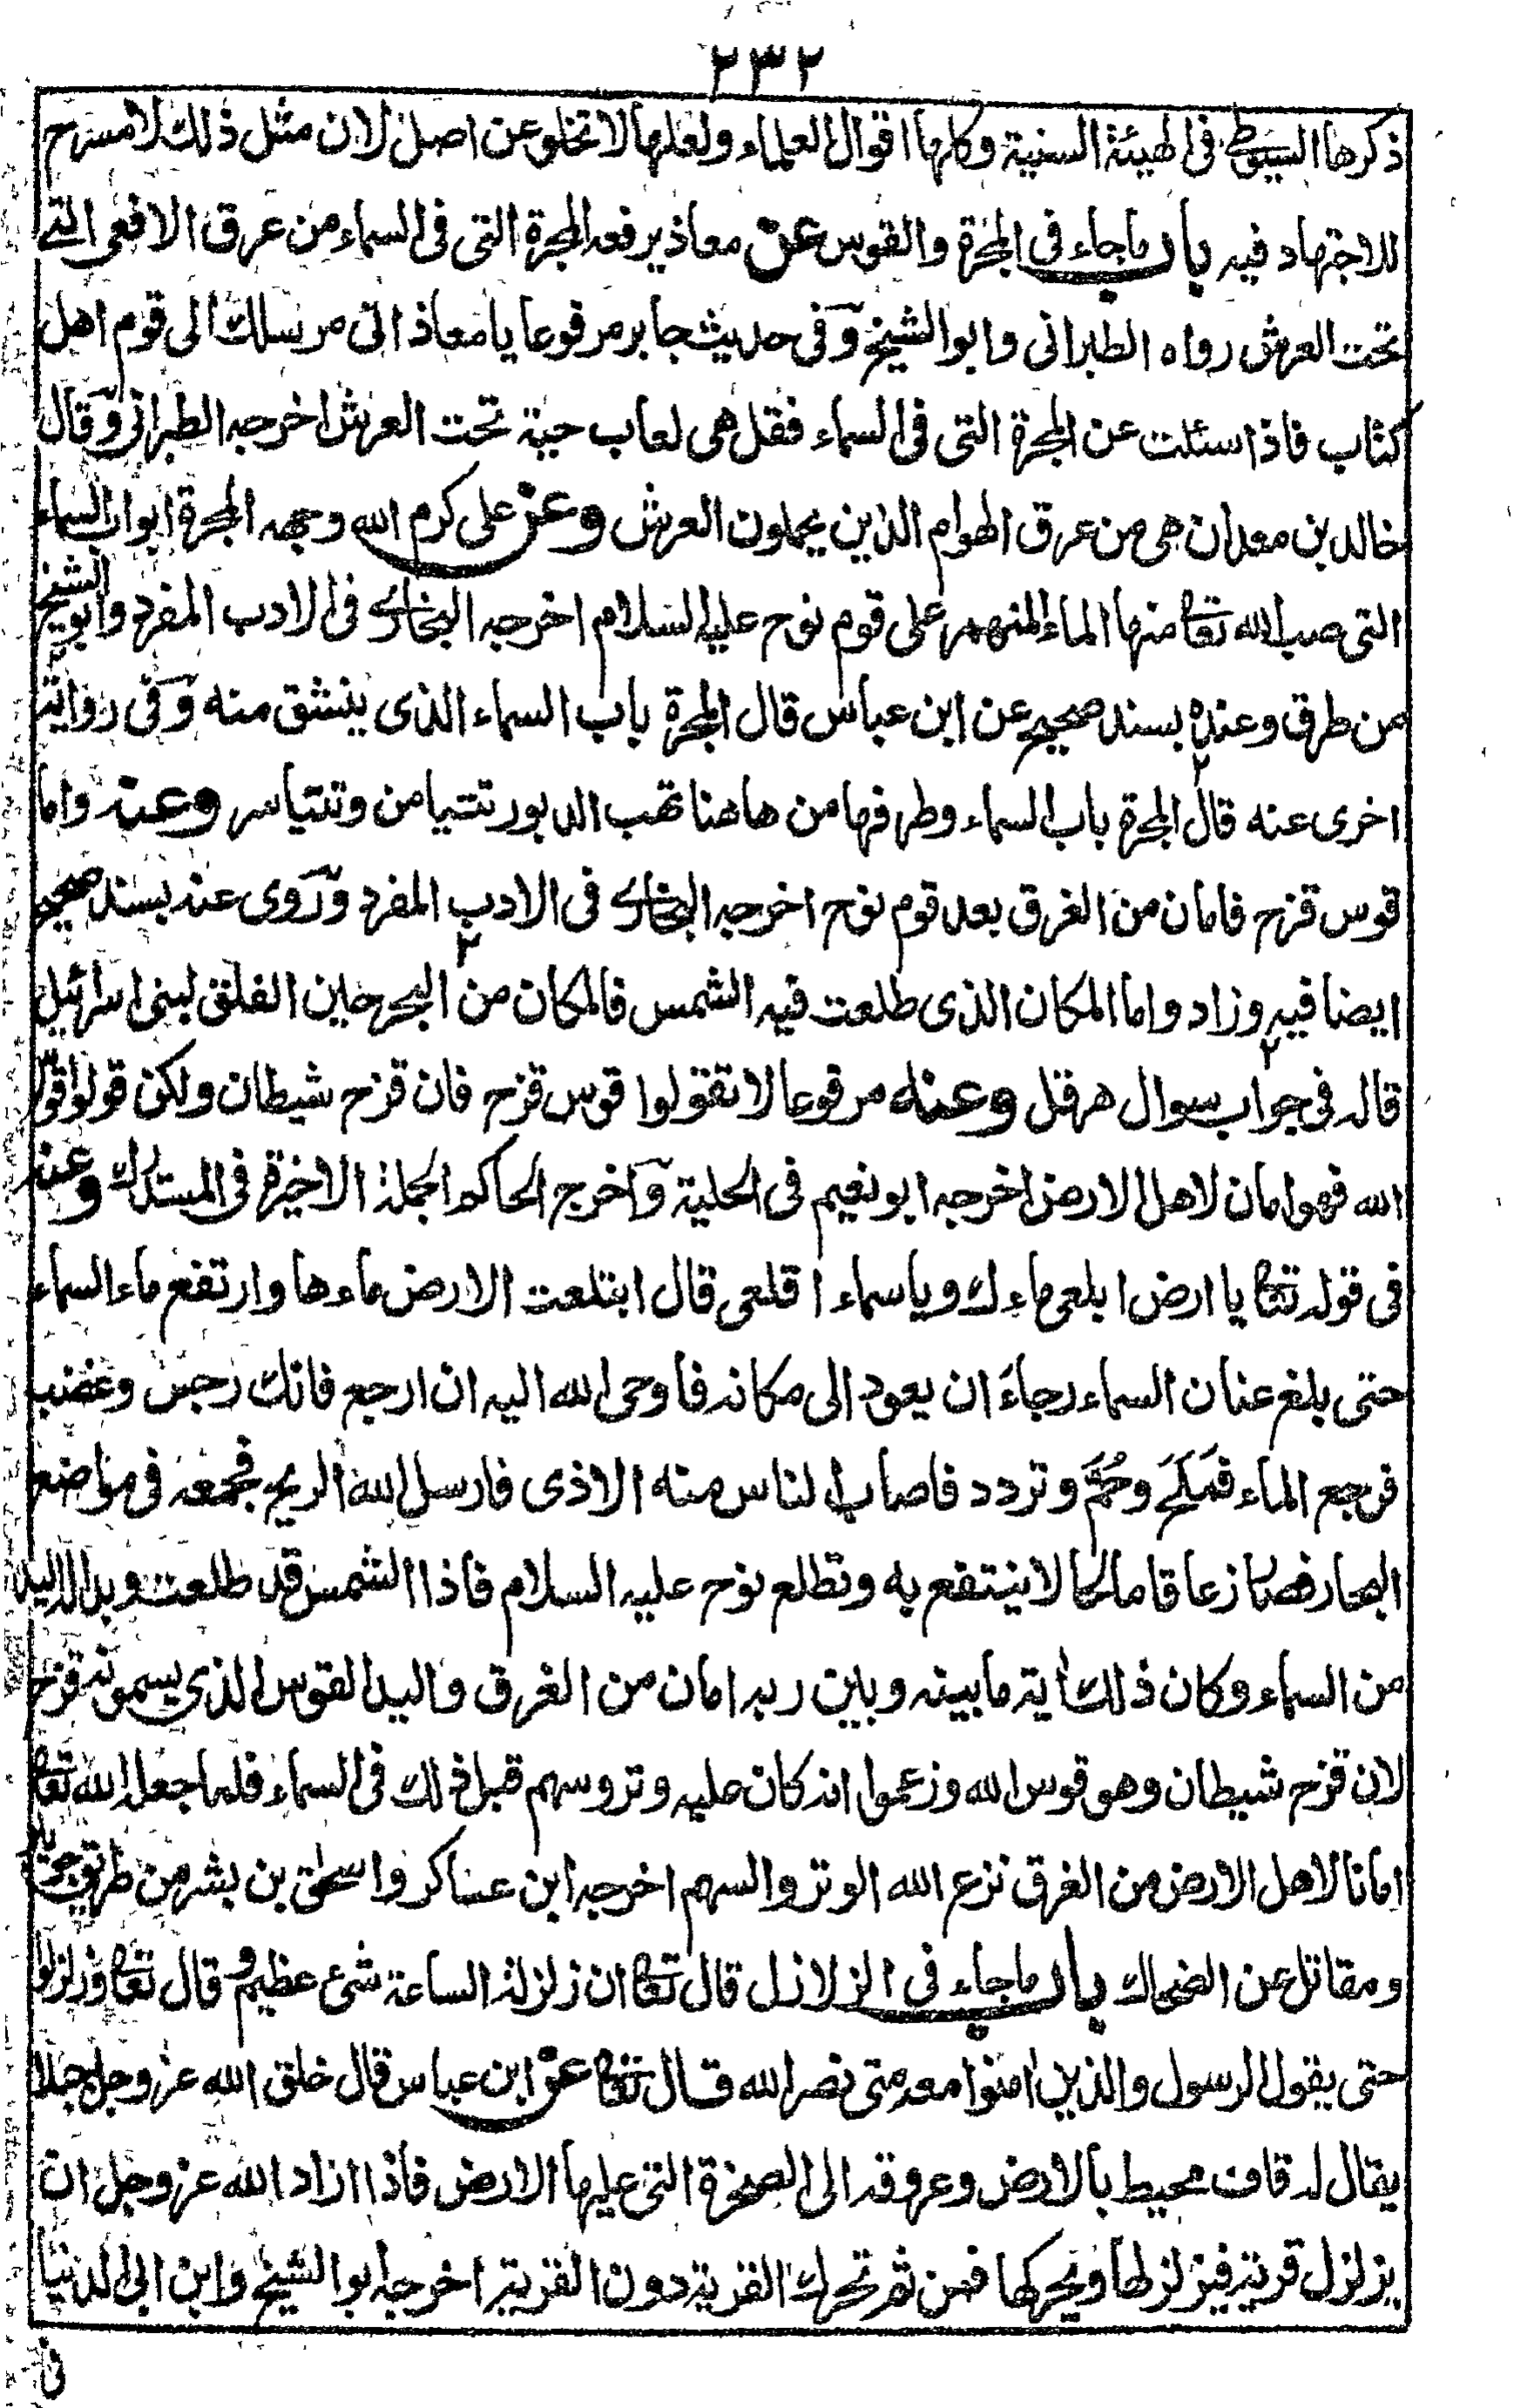 ٢٣٢
ذكرها السيوطي في الهيئة السنية وكلها اقوال العلماء ولعلها لا تخلو عن اصل لان مثل ذلك لا مسرح
للاجتهاد فيه باب ما جاء في المجرة والقوس عن معاذ يرفعه المجرة التي في السماء من عرق الافعى التي
تحت العرش رواه الطبراني وابو الشيخ وفي حديث جابر مرفوعا يا معاذ اني مرسلك الى قوم اهل
كتاب فاذا سئلت عن المجرة التي في السماء فقل هي لعاب حية تحت العرش اخرجه الطبراني وقال
خالد بن معدان هي من عرق الهوام الذين يحملون العرش وعن علي كرم الله وجهه المجرة ابواب السماء
التي صب الله تعا منها الماء المنهمر على قوم نوح عليه السلام اخرجه البخاري في الادب المفرد وابو الشيخ
من طرق وعنده بسند صحيح عن ابن عباس قال المجرة باب السماء الذي ينشق منه وفي رواية
اخرى عنه قال المجرة باب السماء وطرفها من هاهنا تهب الدبور تتيامن وتتياسر وعنه واما
قوس قزح فامان من الغرق بعد قوم نوح اخرجه البخاري في الادب المفرد وروى عنه بسند صحيح
ايضا فيه وزاد واما المكان الذي طلعت فيه الشمس فالمكان من البحر حين الفلق لبني اسرائيل
قاله في جواب سوال هرقل وعنه مرفوعا لا تقولوا قوس قزح فان قزح شيطان ولكن قولوا قوس
الله فهو امان لاهل الارض اخرجه ابو نعيم في الحلية واخرج الحاكم الجملة الاخيرة في المستدرك وعنه
في قوله تعا يا ارض ابلعي ماءك ويا سماء اقلعي قال ابتلعت الارض ماءها وارتفع ماء السماء
حتى بلغ عنان السماء رجاء ان يعود الى مكانه فاوحى الله اليه ان ارجع فانك رجس وغضب
فرجع الماء فملح وحم وتردد فاصاب الناس منه الاذى فارسل الله الريح فجمعه في مواضع
البحار فصار زعاقا مالحا لا ينتفع به وتطلع نوح عليه السلام فاذا الشمس قد طلعت وبدا له اليد
من السماء وكان ذلك اية ما بينه وبين ربه امان من الغرق واليد القوس الذي يسمونه قزح
لان قزح شيطان وهو قوس الله وزعموا انه كان عليه وتر وسهم قبل ذلك في السماء فلما جعل الله تعا
امانا لاهل الارض من الغرق نزع الله الوتر والسهم اخرجه ابن عساكر واسحق بن بشر من طريق جويبر
ومقاتل عن الضحاك باب ما جاء في الزلازل قال تعا ان زلزلة الساعة شئ عظيم وقال تعا وزلزلوا
حتى يقول الرسول والذين امنوا معه متى نصر الله قال تعا عن ابن عباس قال خلق الله عز وجل جبلا
يقال له قاف محيط بالارض وعروقه الى الصخرة التي عليها الارض فاذا اراد الله عز وجل ان
يزلزل قرية فيزلزلها ويحركها فمن ثم تحرك القرية دون القرية اخرجه ابو الشيخ وابن ابي الدنيا
في